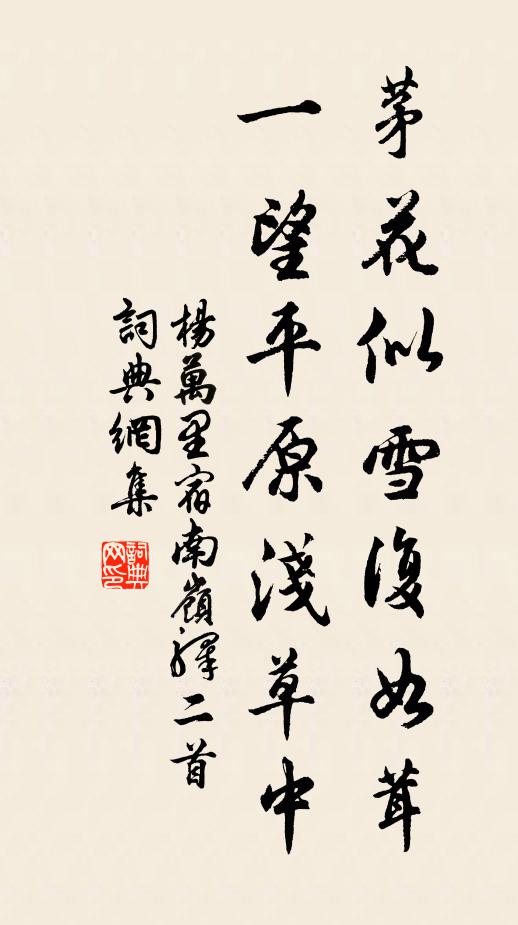 茅花似雪復如茸
一望平原淺草中
楊萬里宿南嶺驛二首
詞典網集
詞典网印